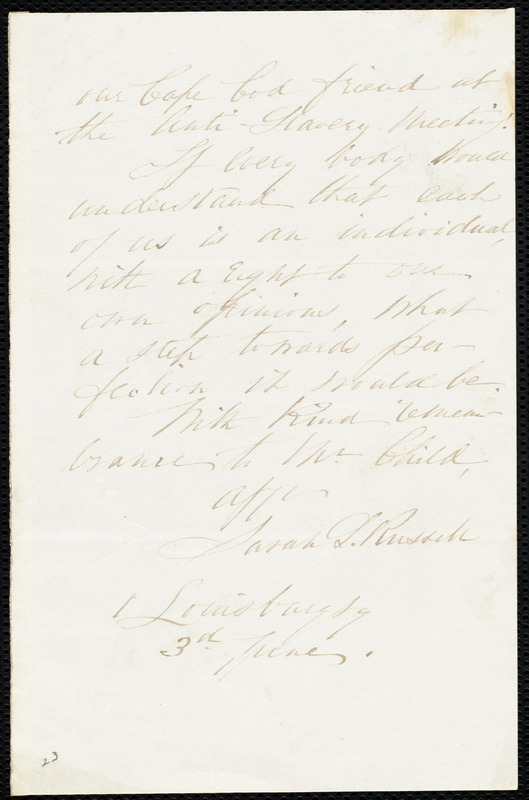 our Cape Cod friend at
the Anti-Slavery Meeting.
If every body would
understand that each
of us is an individual,
with a right to our
own opinions, what
a step towards per-
fection it would be.
With kind remem-
brance to Mr. Child,
affy
Sarah S. Russell
1 Louisburg Sq
3d June.
23